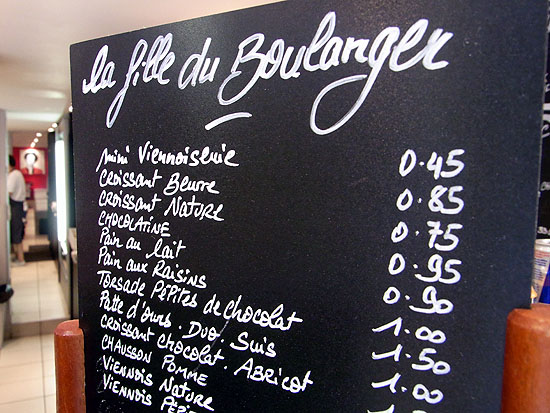 la fille du Boulanger
mini Viennoiserie 0.45
CROISSANT BEURRE 0.85
CROISSANT NATURE 0.75
CHOCOLATINE 0.95
Pain au lait 0.90
Pain aux Raisins 1.00
TORSADE PÉPITES de chocolat 1.50
Patte d'ours. Duo. Suis 1.00
CROISSANT chocolat. Abricot
CHAUSSON POMME
VIENNOIS NATURE
VIENNOIS